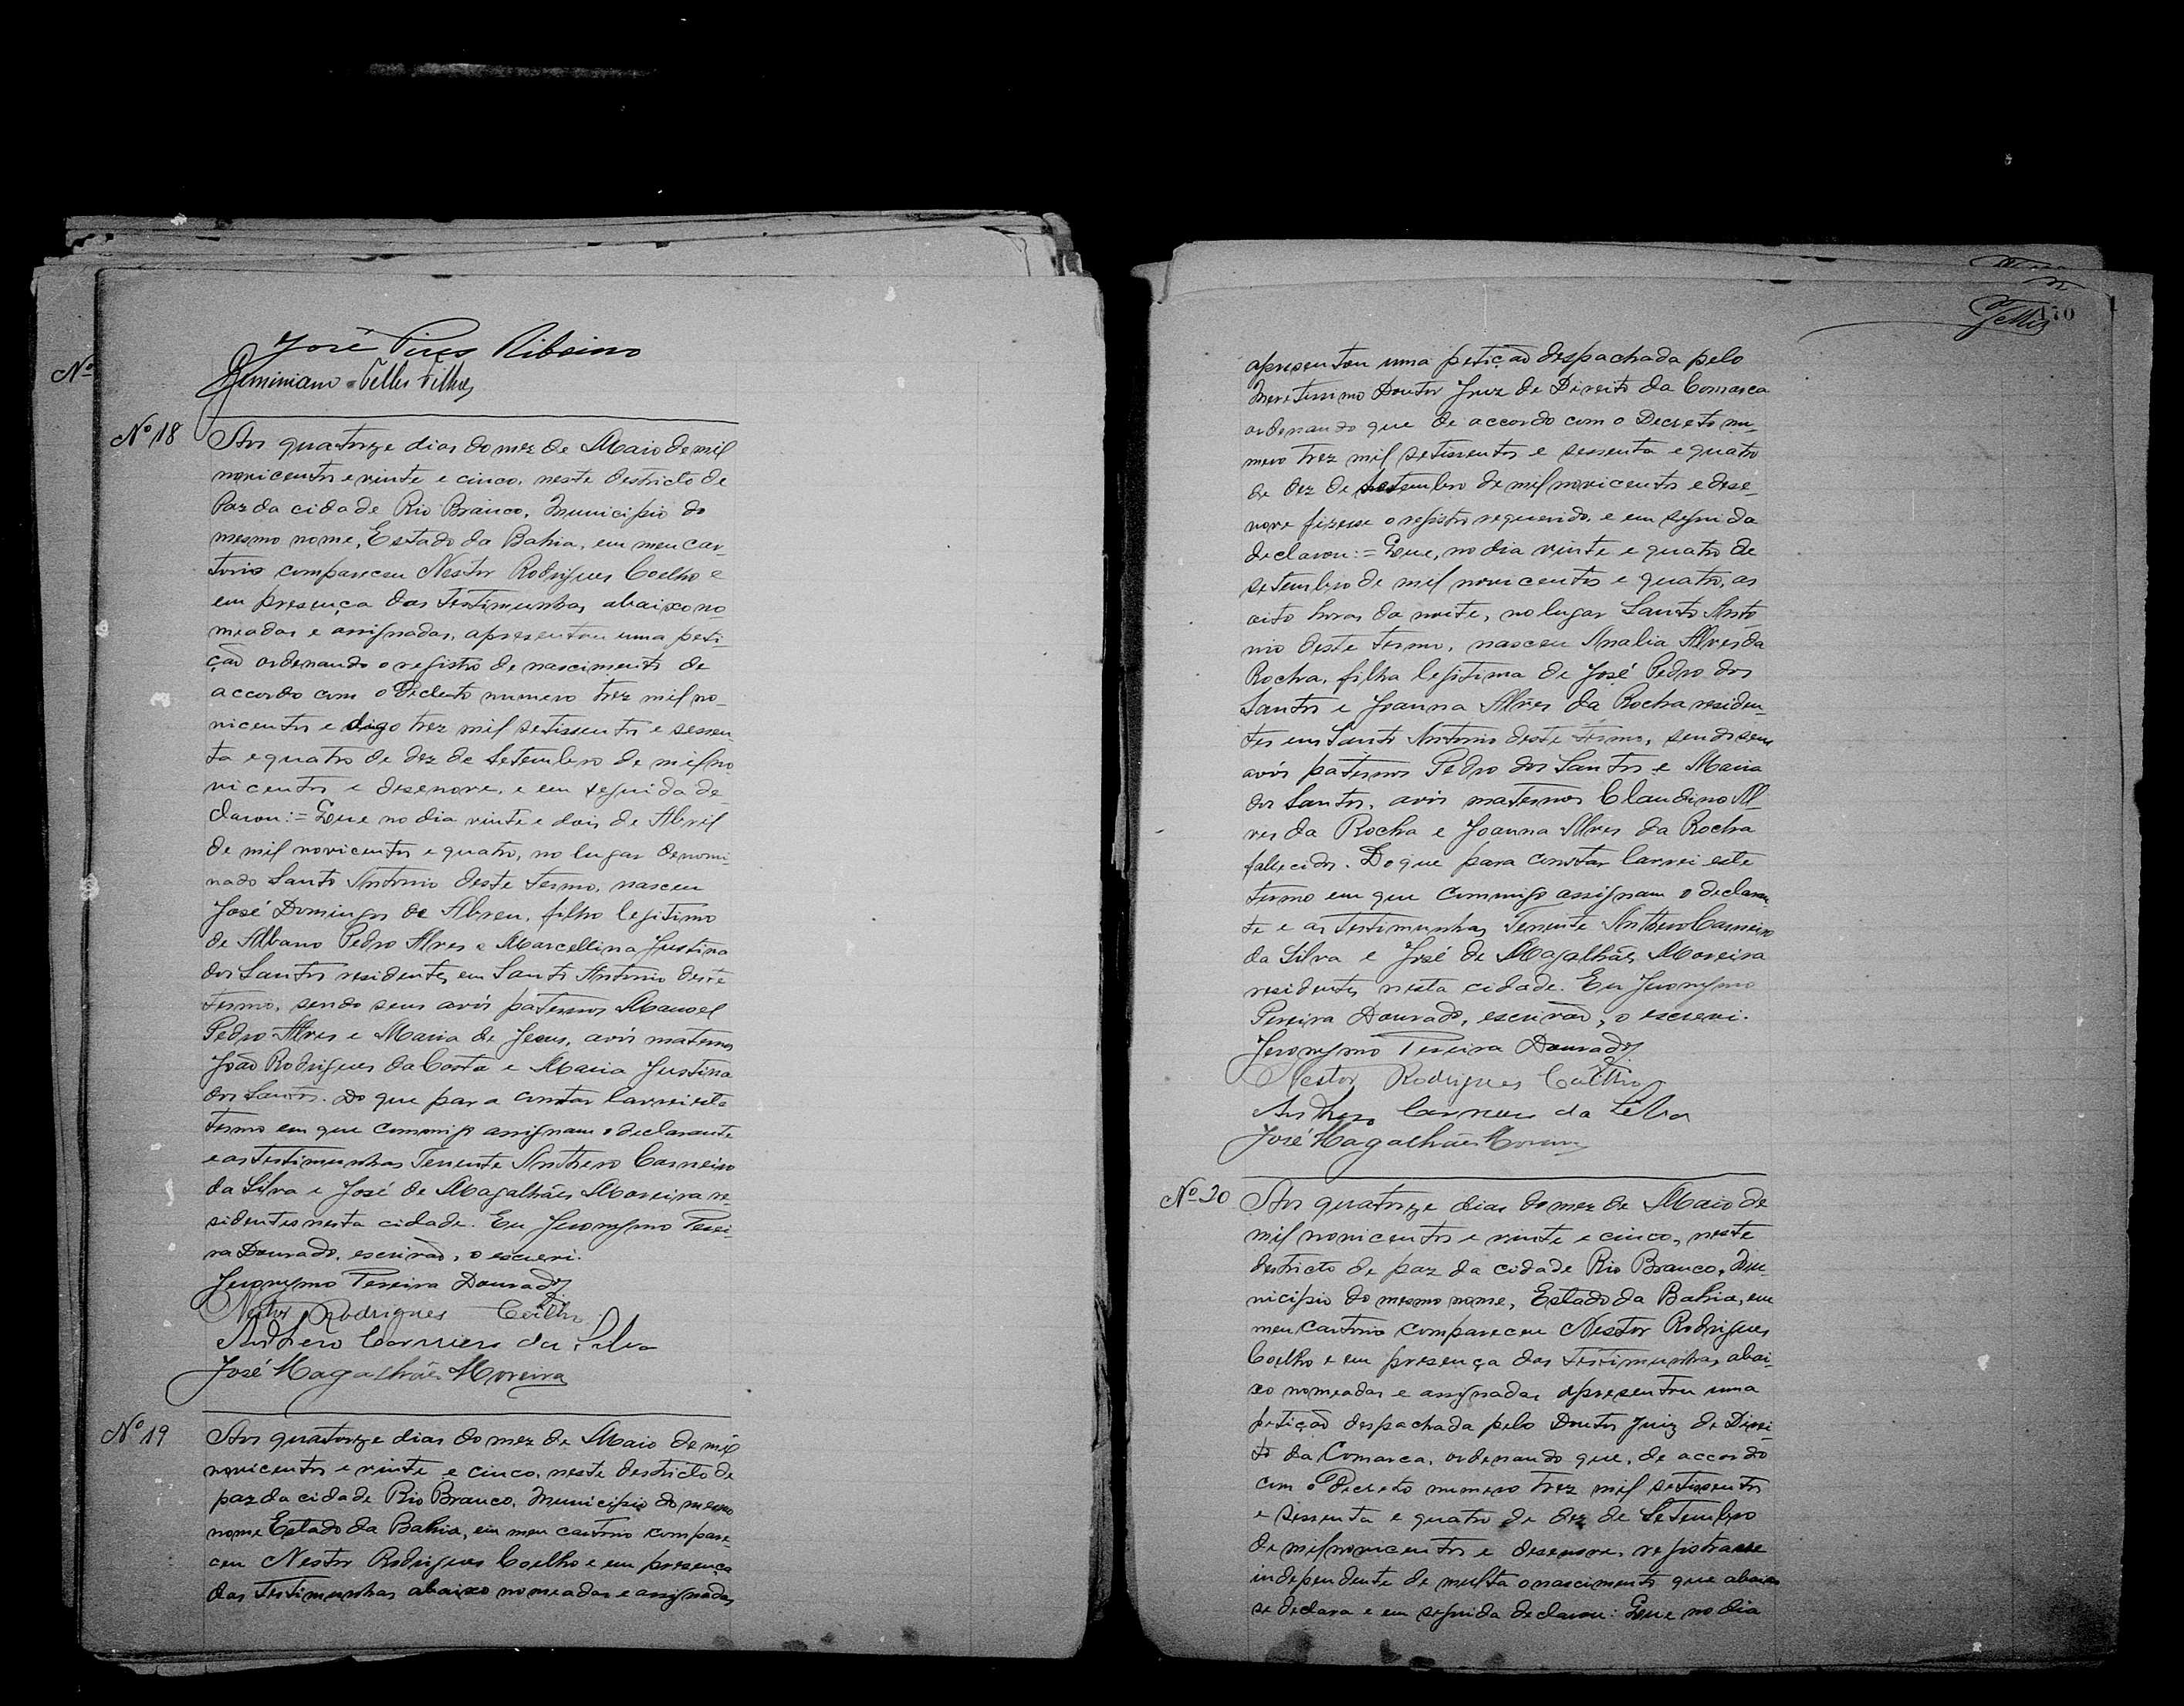 José Pires Ribeiro
Geminiano Telles Filho
Nº
Nº 18
Aos quatorze dias do mez de Maio de mil
novicentos e vinte e cinco, neste destricto de
Paz da cidade Rio Branco, Municipio do
mesmo nome, Estado da Bahia, em meu car-
torio compareceu Nestor Rodrigues Coelho e
em presença das testimunhas abaixo no-
meadas e assignadas, apresentou uma peti-
ção ordenando o registro de nascimento de
accordo com o Decreto numero trez mil no-
vicentos e digo trez mil setissentos e sessen-
ta e quatro de dez de Setembro de mil no-
vicentos e desenove, e em seguida de-
clarou:= Que no dia vinte e dois de Abril
de mil novicentos e quatro, no lugar denomi-
nado Santo Antonio deste termo, nasceu
José Domingos de Abreu, filho legitimo
de Albano Pedro Alves e Marcellina Justina
dos Santos residentes em Santo Antonio deste
termo, sendo seus avós paternos Manoel
Pedro Alves e Maria de Jesus, avós maternos
João Rodrigues da Costa e Maria Justina
dos Santos. Do que para constar lavrei este
termo em que commigo assignam o declarante
e as testimunhas Tenente Anthero Carneiro
da Silva e José de Magalhães Moreira re
sidentes nesta cidade. Eu Jeronymo Perei-
ra Dourado, escrivão, o escrevi.
Jeronymo Pereira Dourado
Nestor Rodrigues Coelho
Anthero Carneiro da Silva
José Magalhães Moreira
Nº 19
Aos quatorze dias do mez de Maio de mil
novicentos e vinte e cinco, neste destricto de
paz da cidade Rio Branco, Municipio do mesmo
nome Estado da Bahia, em meu cartorio compare-
ceu Nestor Rodrigues Coelho e em presença
das testimunhas abaixo nomeadas e assignadas
Telles
170
apresentou uma petição despachada pelo
Meretissimo Doutor Juiz de Direito da Comarca
ordenando que de accordo com o Decreto nu-
mero trez mil setissentos e sessenta e quatro
de dez de setembro de mil novicentos e dese-
nove fizesse o registro requerido, e em seguida
declarou:= Que, no dia vinte e quatro de
setembro de mil novicentos e quatro, as
oito horas da noite, no lugar Santo Anto
nio deste termo, nasceu Analia Alves da
Rocha, filha legitima de José Pedro dos
Santos e Joanna Alves da Rocha residen-
tes em Santo Antonio deste termo, sendo seus
avós paternos Pedro dos Santos e Maria
dos Santos, avós maternos Claudino Al-
ves da Rocha e Joanna Alves da Rocha
fallecidos. Do que para constar lavrei este
termo em que commigo assignam o declaran
te e as testimunhas Tenente Anthero Carneiro
da Silva e José de Magalhães Moreira
residentes nesta cidade. Eu Jeronymo
Pereira Dourado, escrivão, o escrevi.
Jeronymo Pereira Dourado
Nestor Rodrigues Coelho
Anthero Carneiro da Silva
José Magalhães Moreira
Nº 20
Aos quatorze dias do mez de Maio de
mil novicentos e vinte e cinco, neste
destricto de paz da cidade Rio Branco, Mu-
nicipio do mesmo nome, Estado da Bahia, em
meu cartorio compareceu Nestor Rodrigues
Coelho e em presença das testimunhas abai-
xo nomeadas e assignadas apresentou uma
petição despachada pelo Doutor Juiz de Direi-
to da Comarca, ordenando que, de accordo
com o Decreto numero trez mil setissentos
e sessenta e quatro de dez de Setembro
de mil novicentos e desenove, registrasse
independente de multa o nascimento que abaixo
se declara e em seguida declarou: Que no dia